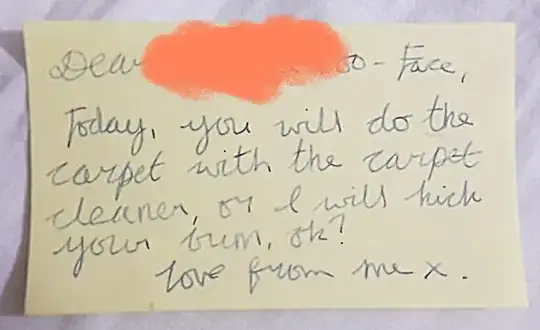 Dear oo-Face,
Today, you will do the
carpet with the carpet
cleaner, or I will kick
your bum, ok?
love from me x.